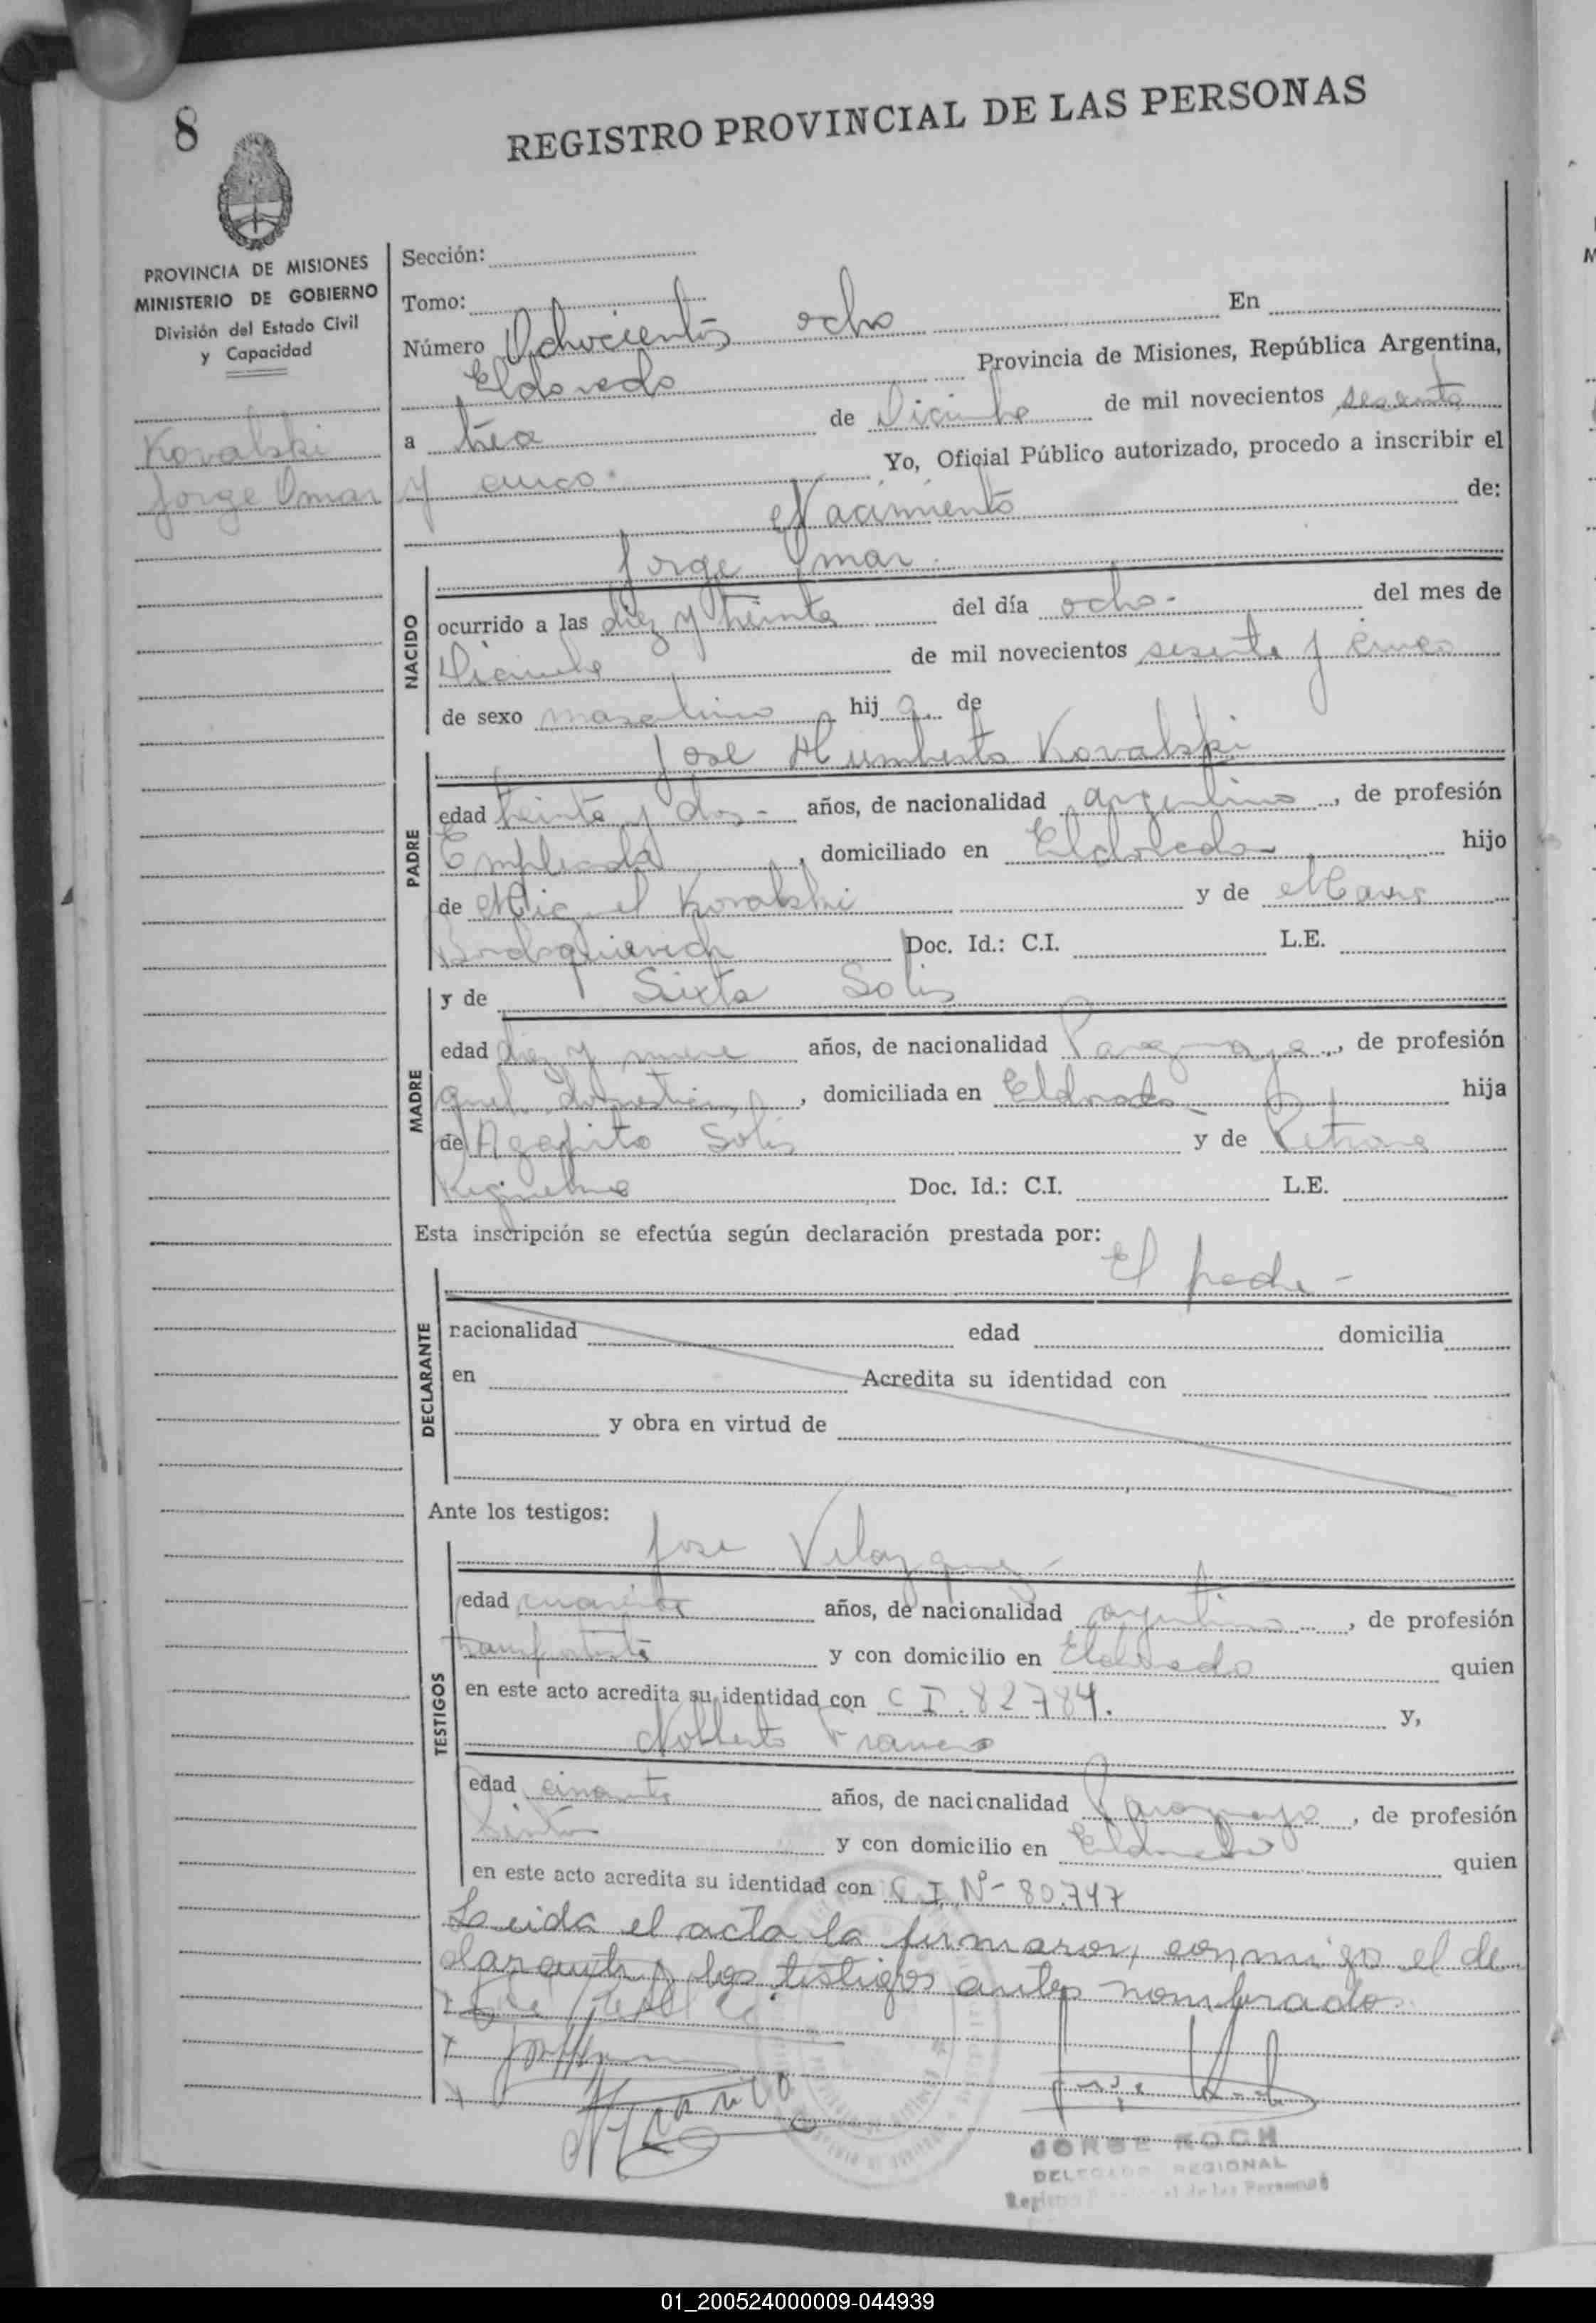 8
REGISTRO PROVINCIAL DE LAS PERSONAS
PROVINCIA DE MISIONES
MINISTERIO DE GOBIERNO
División del Estado Civil
y Capacidad
Kovalski
Jorge Omar
Sección:
Tomo:
Número Ochocientos ocho En
Eldorado Provincia de Misiones, República Argentina,
a de Diciembre de mil novecientos sesenta
y cinco. Yo, Oficial Público autorizado, procedo a inscribir el
Nacimiento de:
Jorge Omar
NACIDO
ocurrido a las diez y treinta del día ocho - del mes de
Diciembre de mil novecientos sesenta y cinco
de sexo masculino hij o de
José Humberto Kovalski
PADRE
edad treinta y dos - años, de nacionalidad argentino, de profesión
Empleado, domiciliado en Eldorado hijo
de Miguel Kovalski y de
Doc. Id.: C.I. L.E.
MADRE
y de Sixta Solis
edad diez y nueve años, de nacionalidad Paraguaya, de profesión
domiciliada en Eldorado - hija
de Agapito Solis y de Petrona
Doc. Id.: C.I. L.E.
Esta inscripción se efectúa según declaración prestada por:
El padre -
DECLARANTE
nacionalidad edad domicilia
en Acredita su identidad con
y obra en virtud de
Ante los testigos:
José Velazquez -
TESTIGOS
edad cuarenta años, de nacionalidad argentino, de profesión
transportista y con domicilio en Eldorado quien
en este acto acredita su identidad con C I. 82784. y,
Norberto Franco
edad años, de nacionalidad Paraguayo, de profesión
y con domicilio en Eldorado quien
en este acto acredita su identidad con C I, Nº - 80.747
Leida el acta la firmaron, conmigo el de
clarante y los testigos antes nombrados.
JORGE KOCH
DELEGADO REGIONAL
de las Personas
01_200524000009-044939